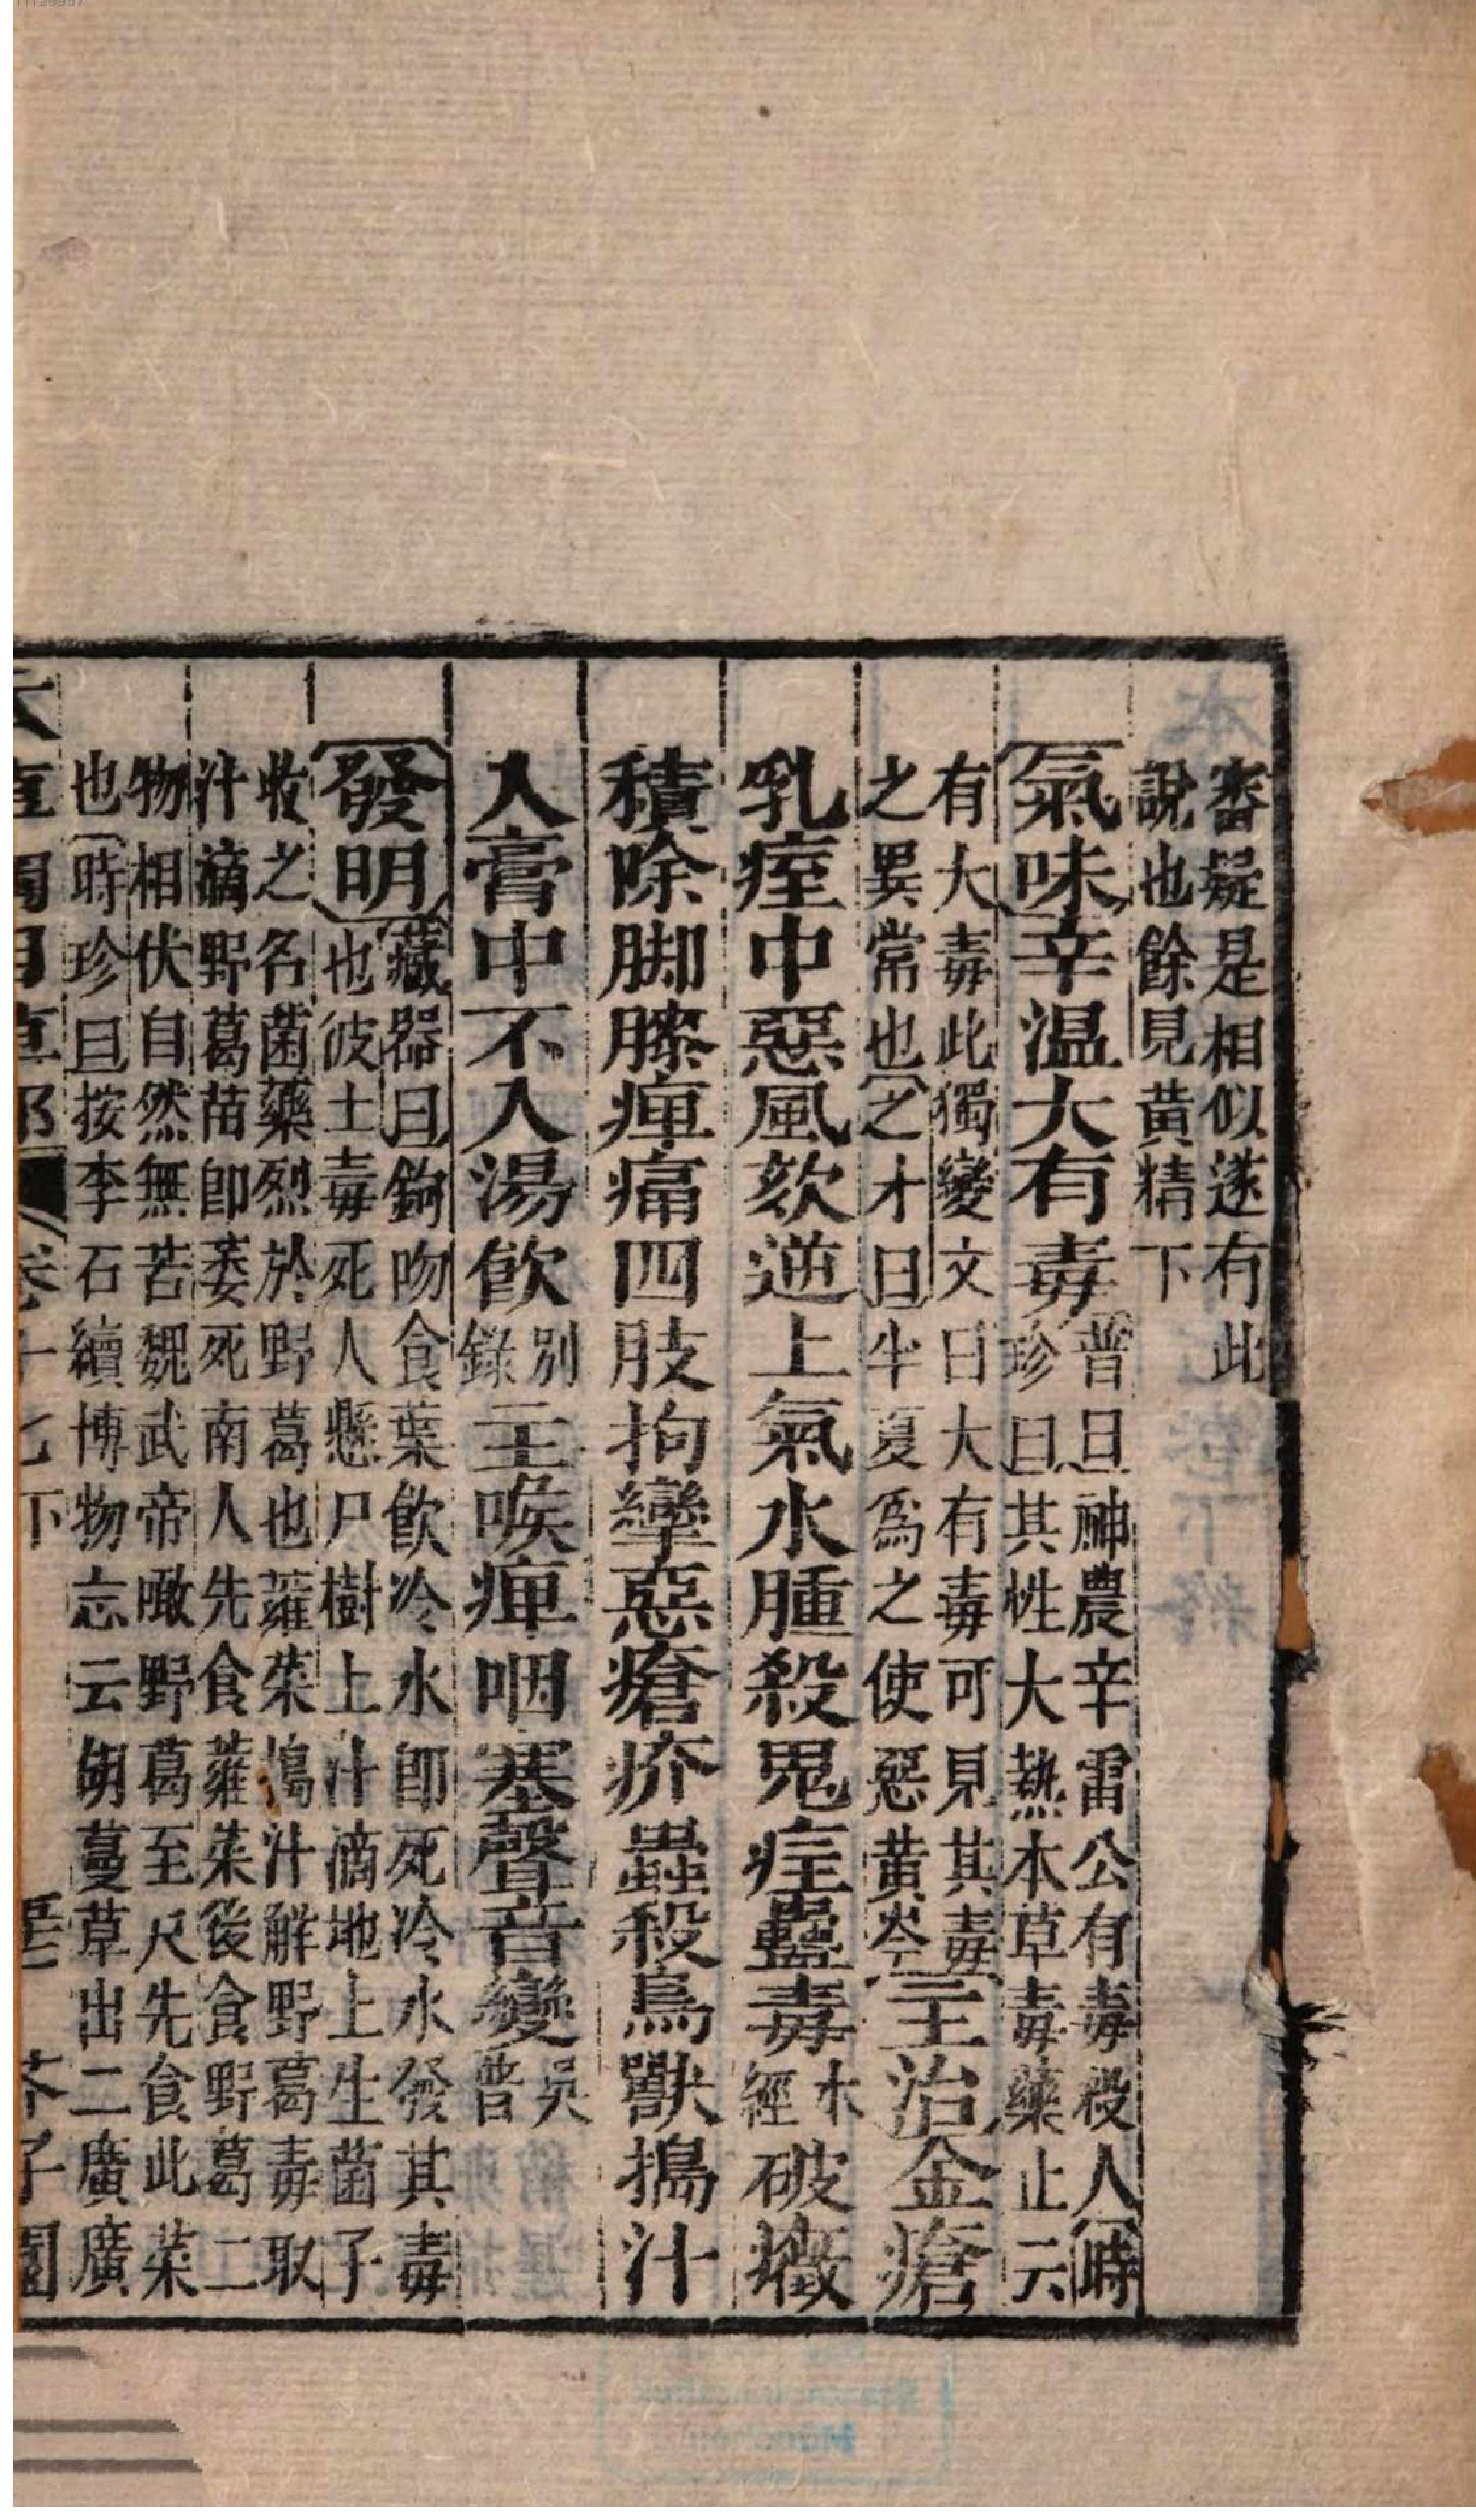 審疑是相似遂有此
說也餘見黃精下
氣味辛温大有毒普曰神農辛雷公有毒殺人時
珍曰其性大熱本草毒藥止云
有大毒此獨變文曰大有毒可見其毒
之異常也之才曰半夏爲之使惡黃芩主治金瘡
乳痓中惡風欬逆上氣水腫殺鬼疰蠱毒本經破癥
積除脚膝痺痛四肢拘攣惡瘡疥蟲殺鳥獸搗汁
入膏中不入湯飮別錄主喉痺咽塞聲音變吳普
發明藏器曰鉤吻食葉飮冷水卽死冷水發其毒
也彼土毒死人懸尸樹上汁滴地上生菌子
收之名菌藥烈於野葛也蕹菜搗汁解野葛毒取
汁滴野葛苗卽萎死南人先食蕹菜後食野葛二
物相伏自然無苦魏武帝噉野葛至尺先食此菜
也時珍曰按李石續博物志云胡蔓草出二廣廣